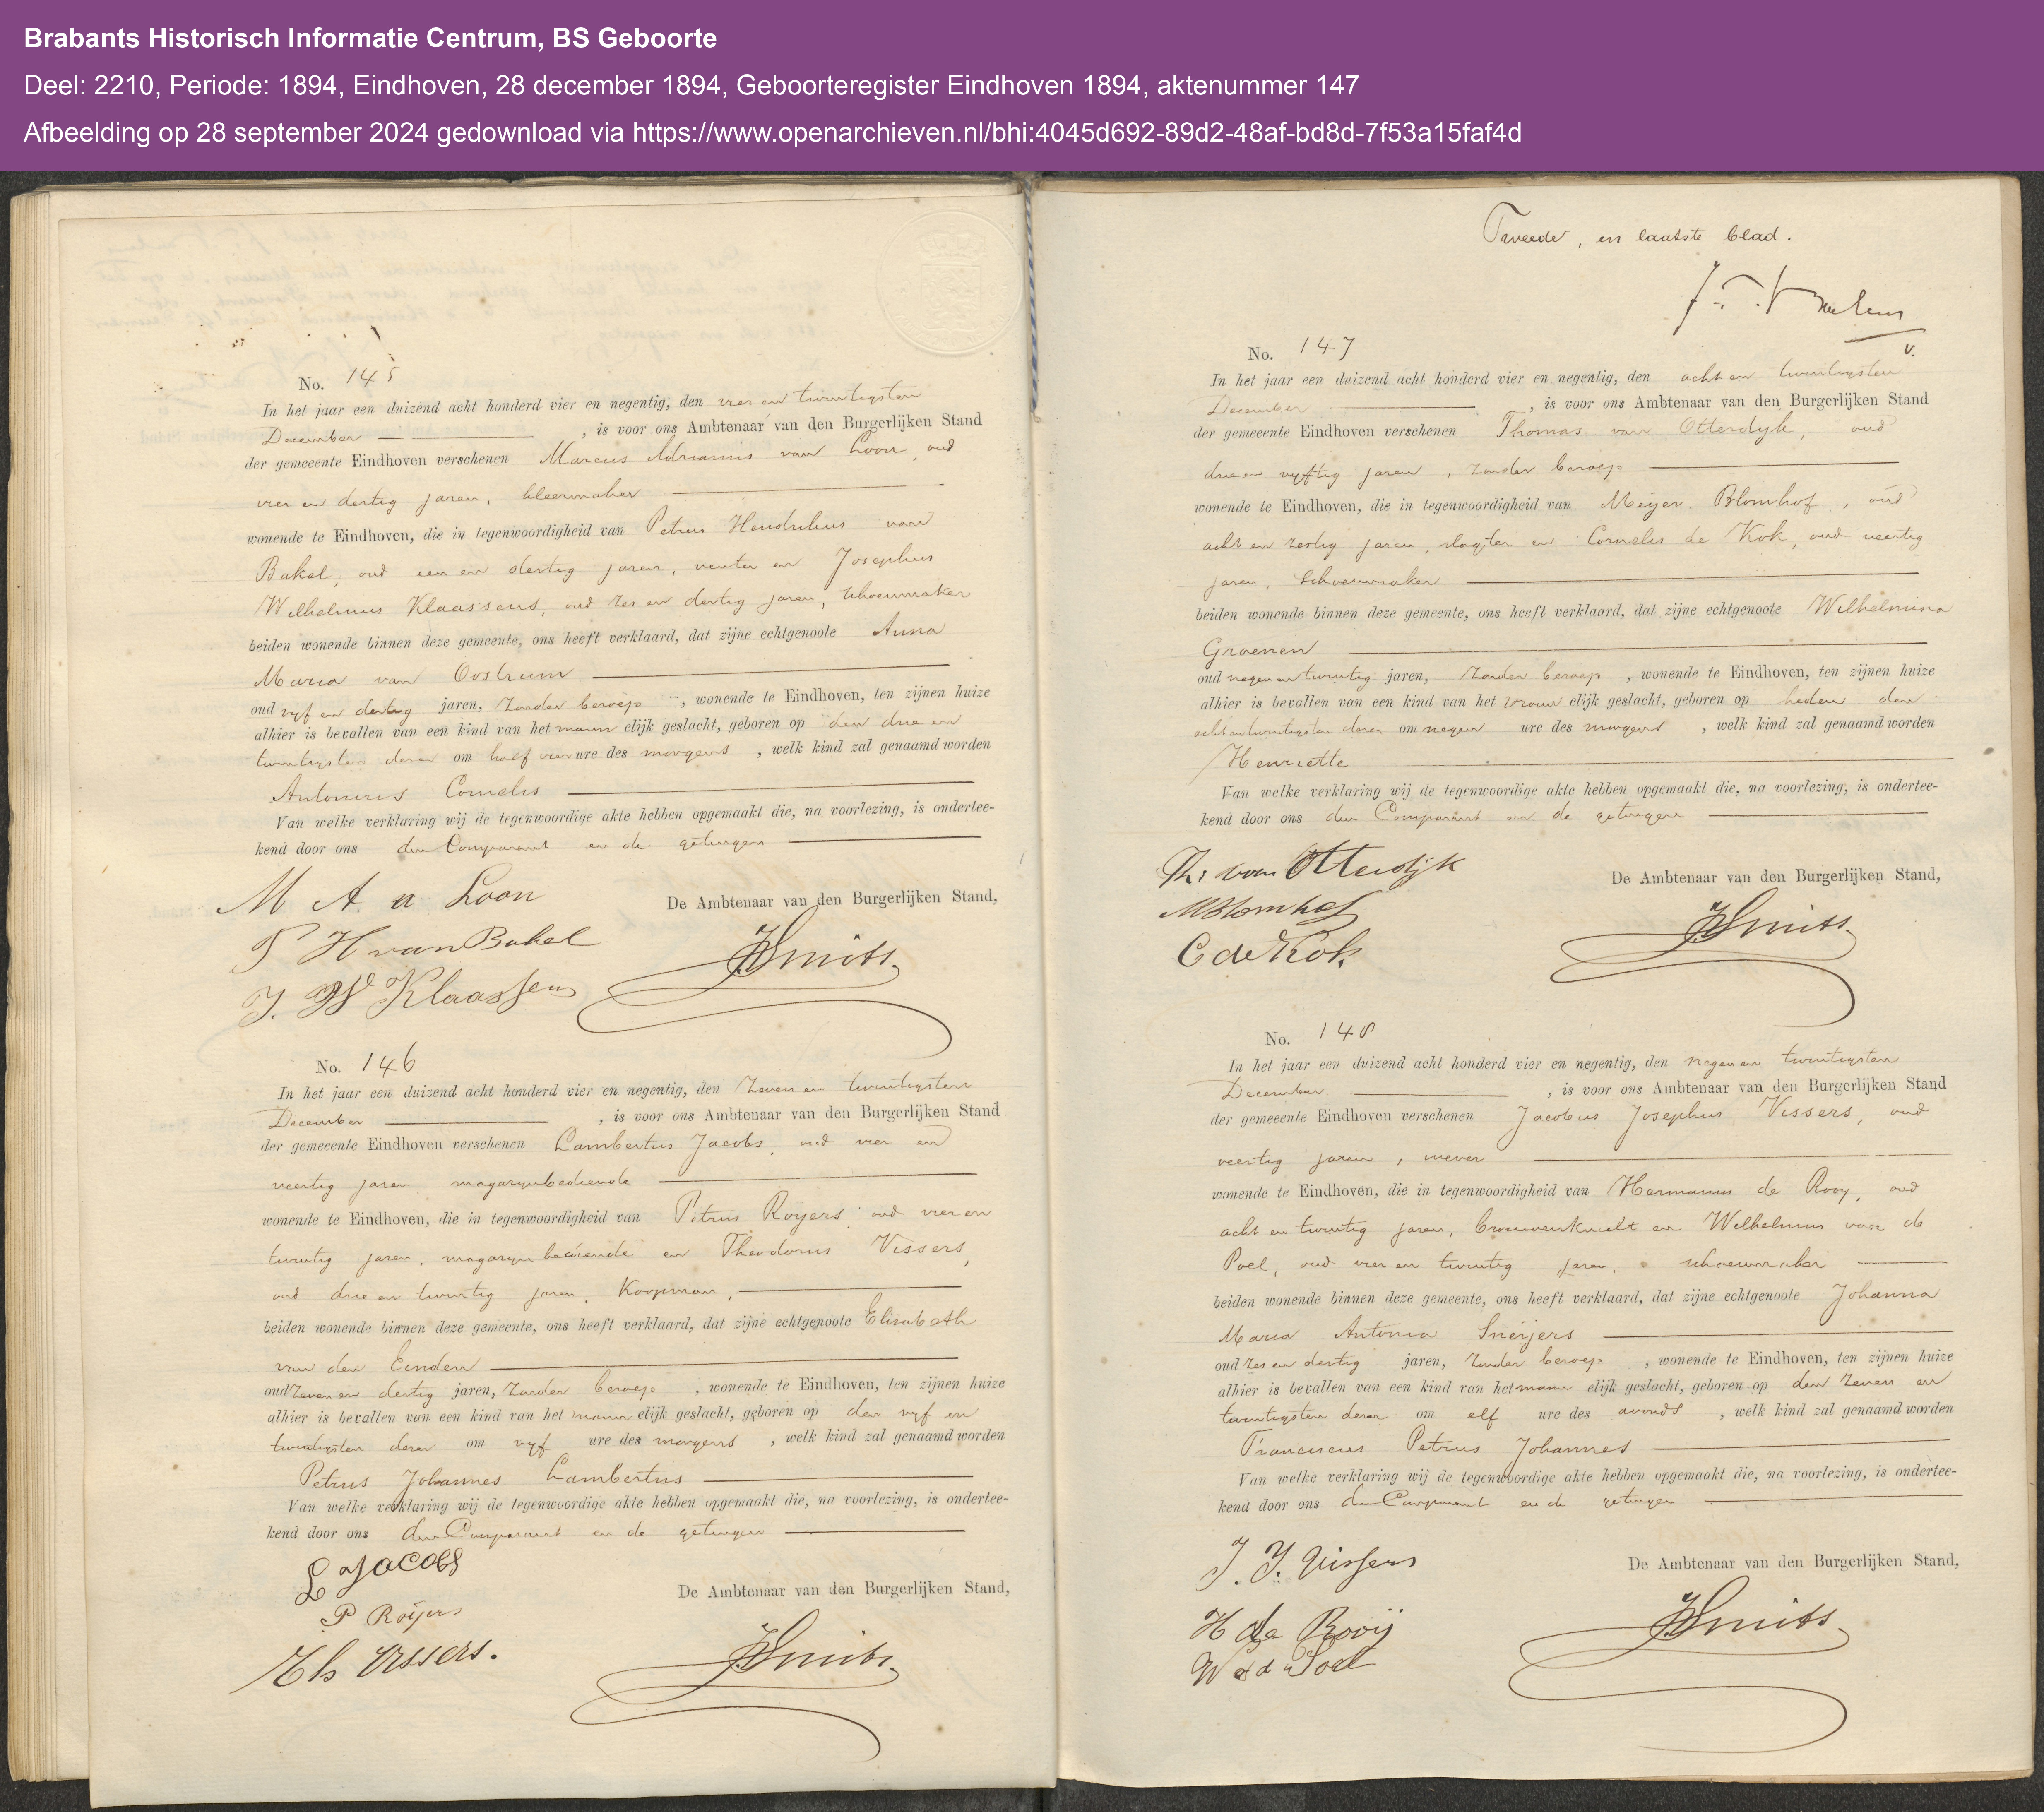 Brabants Historisch Informatie Centrum, BS Geboorte
Deel: 2210, Periode: 1894, Eindhoven, 28 december 1894, Geboorteregister Eindhoven 1894, aktenummer 147
Afbeelding op 28 september 2024 gedownload via https://www.openarchieven.nl/bhi:4045d692-89d2-48af-bd8d-7f53a15faf4d
No. 145
In het jaar een duizend acht honderd vier en negentig, den vier en twintigsten
December , is voor ons Ambtenaar van den Burgerlijken Stand
der gemeente Eindhoven verschenen Marcus Adrianus van Loon, oud
vier en dertig jaren, kleermaker
wonende te Eindhoven, die in tegenwoordigheid van Petrus Hendrikus van
Bakel, oud een en dertig jaren, venter en Josephus
Wilhelmus Klaassens, oud zes en dertig jaren, schoenmaker
beiden wonende binnen deze gemeente, ons heeft verklaard, dat zijne echtgenoote Anna
Maria van Oostrum
oud vyf en dertig jaren, zonder beroep, wonende te Eindhoven, ten zijnen huize
alhier is bevallen van een kind van het mannelijk geslacht, geboren op den drie en
twintigsten dezer om half vier ure des morgens, welk kind zal genaamd worden
Antonius Cornelis
Van welke verklaring wij de tegenwoordige akte hebben opgemaakt die, na voorlezing, is ondertee-
kend door ons den Comparant en de getuigen
De Ambtenaar van den Burgerlijken Stand,
M A v Loon
P H van Bakel
J. W Klaassens
JSmits.
No. 146
In het jaar een duizend acht honderd vier en negentig, den zeven en twintigsten
December , is voor ons Ambtenaar van den Burgerlijken Stand
der gemeente Eindhoven verschenen Lambertus Jacobs, oud vier en
veertig jaren, magazynbediende
wonende te Eindhoven, die in tegenwoordigheid van Petrus Royers, oud vier en
twintig jaren, magazynbediende en Theodorus Vissers,
oud drie en twintig jaren, Koopman,
beiden wonende binnen deze gemeente, ons heeft verklaard, dat zijne echtgenoote Elisabeth
van den Einden
oud zeven en dertig jaren, zonder beroep, wonende te Eindhoven, ten zijnen huize
alhier is bevallen van een kind van het mannelijk geslacht, geboren op den vyf en
twintigsten dezer om vyf ure des morgens, welk kind zal genaamd worden
Petrus Johannes Lambertus
Van welke verklaring wij de tegenwoordige akte hebben opgemaakt die, na voorlezing, is ondertee-
kend door ons den Comparant en de getuigen
L Jacobs
De Ambtenaar van den Burgerlijken Stand,
P Roijers
Th Vissers.
JSmits.
Tweede, en laatste blad.
No. 147
In het jaar een duizend acht honderd vier en negentig, den acht en twintigsten
December , is voor ons Ambtenaar van den Burgerlijken Stand
der gemeente Eindhoven verschenen Thomas van Otterdyk, oud
drie en vyftig jaren, zonder beroep
wonende te Eindhoven, die in tegenwoordigheid van Meijer Blomhof, oud
acht en zestig jaren, slagter en Cornelis de Kok, oud veertig
jaren, schoenmaker
beiden wonende binnen deze gemeente, ons heeft verklaard, dat zijne echtgenoote Wilhelmina
Groenen
oud negen en twintig jaren, zonder beroep, wonende te Eindhoven, ten zijnen huize
alhier is bevallen van een kind van het vrouwelijk geslacht, geboren op heden den
acht en twintigsten dezer om negen ure des morgens, welk kind zal genaamd worden
Henriette
Van welke verklaring wij de tegenwoordige akte hebben opgemaakt die, na voorlezing, is ondertee-
kend door ons den Comparant en de getuigen
Th: van Otterdijk
De Ambtenaar van den Burgerlijken Stand,
MBlomhof
C de Kok.
JSmits.
No. 148
In het jaar een duizend acht honderd vier en negentig, den negen en twintigsten
December , is voor ons Ambtenaar van den Burgerlijken Stand
der gemeente Eindhoven verschenen Jacobus Josephus Vissers, oud
veertig jaren, wever
wonende te Eindhoven, die in tegenwoordigheid van Hermanus de Rooy, oud
acht en twintig jaren, brouwersknecht en Wilhelmus van de
Poel, oud vier en twintig jaren, schoenmaker
beiden wonende binnen deze gemeente, ons heeft verklaard, dat zijne echtgenoote Johanna
Maria Antonia Sneijers
oud zes en dertig jaren, zonder beroep, wonende te Eindhoven, ten zijnen huize
alhier is bevallen van een kind van het mannelijk geslacht, geboren op den zeven en
twintigsten dezer om elf ure des avonds, welk kind zal genaamd worden
Franciscus Petrus Johannes
Van welke verklaring wij de tegenwoordige akte hebben opgemaakt die, na voorlezing, is ondertee-
kend door ons den Comparant en de getuigen
J. J. Vissers
De Ambtenaar van den Burgerlijken Stand,
H de Rooij
W v d Poel
JSmits.